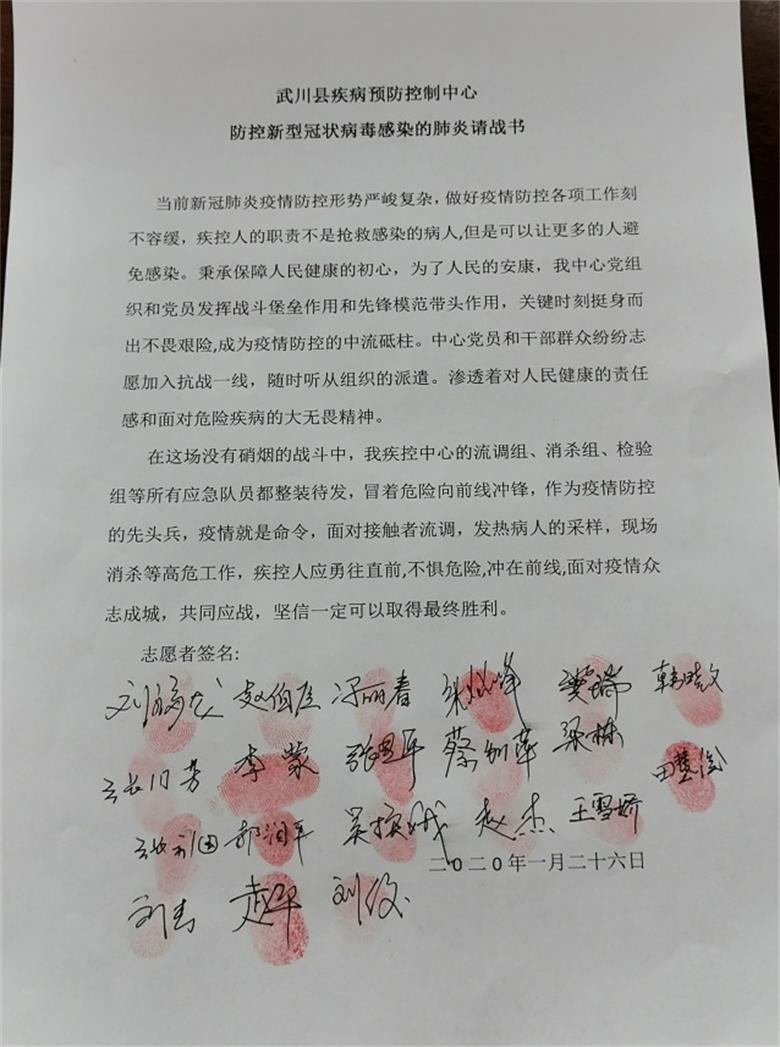 武川县疾病预防控制中心
防控新型冠状病毒感染的肺炎请战书
当前新冠肺炎疫情防控形势严峻复杂，做好疫情防控各项工作刻
不容缓，疾控人的职责不是抢救感染的病人,但是可以让更多的人避
免感染。秉承保障人民健康的初心，为了人民的安康，我中心党组
织和党员发挥战斗堡垒作用和先锋模范带头作用，关键时刻挺身而
出不畏艰险,成为疫情防控的中流砥柱。中心党员和干部群众纷纷志
愿加入抗战一线，随时听从组织的派遣。渗透着对人民健康的责任
感和面对危险疾病的大无畏精神。
在这场没有硝烟的战斗中，我疾控中心的流调组、消杀组、检验
组等所有应急队员都整装待发，冒着危险向前线冲锋，作为疫情防控
的先头兵，疫情就是命令，面对接触者流调，发热病人的采样，现场
消杀等高危工作，疾控人应勇往直前,不惧危险,冲在前线,面对疫情众
志成城，共同应战，坚信一定可以取得最终胜利。
志愿者签名:
冯丽春
李蒙 梁栋
赵杰 王雪娇
二〇二〇年一月二十六日